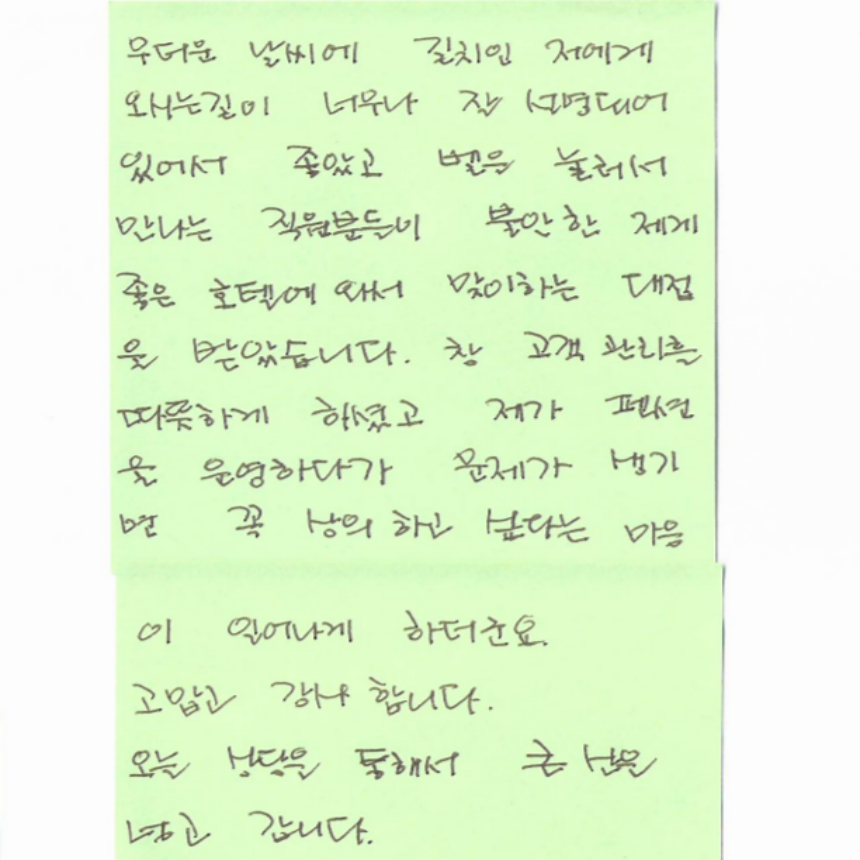 무더운 날씨에 길치인 저에게
오시는길이 너무나 잘 설명되어
있어서 좋았고 벨을 눌러서
만나는 직원분들이 불안한 제게
좋은 호텔에 와서 맞이하는 대접
을 받았습니다. 참 고객 관리를
따뜻하게 하셨고 제가 펜션
을 운영하다가 문제가 생기
면 꼭 상의 하고 싶다는 마음
이 일어나게 하더군요.
고맙고 감사 합니다.
오늘 상담을 통해서 큰 산을
넘고 갑니다.